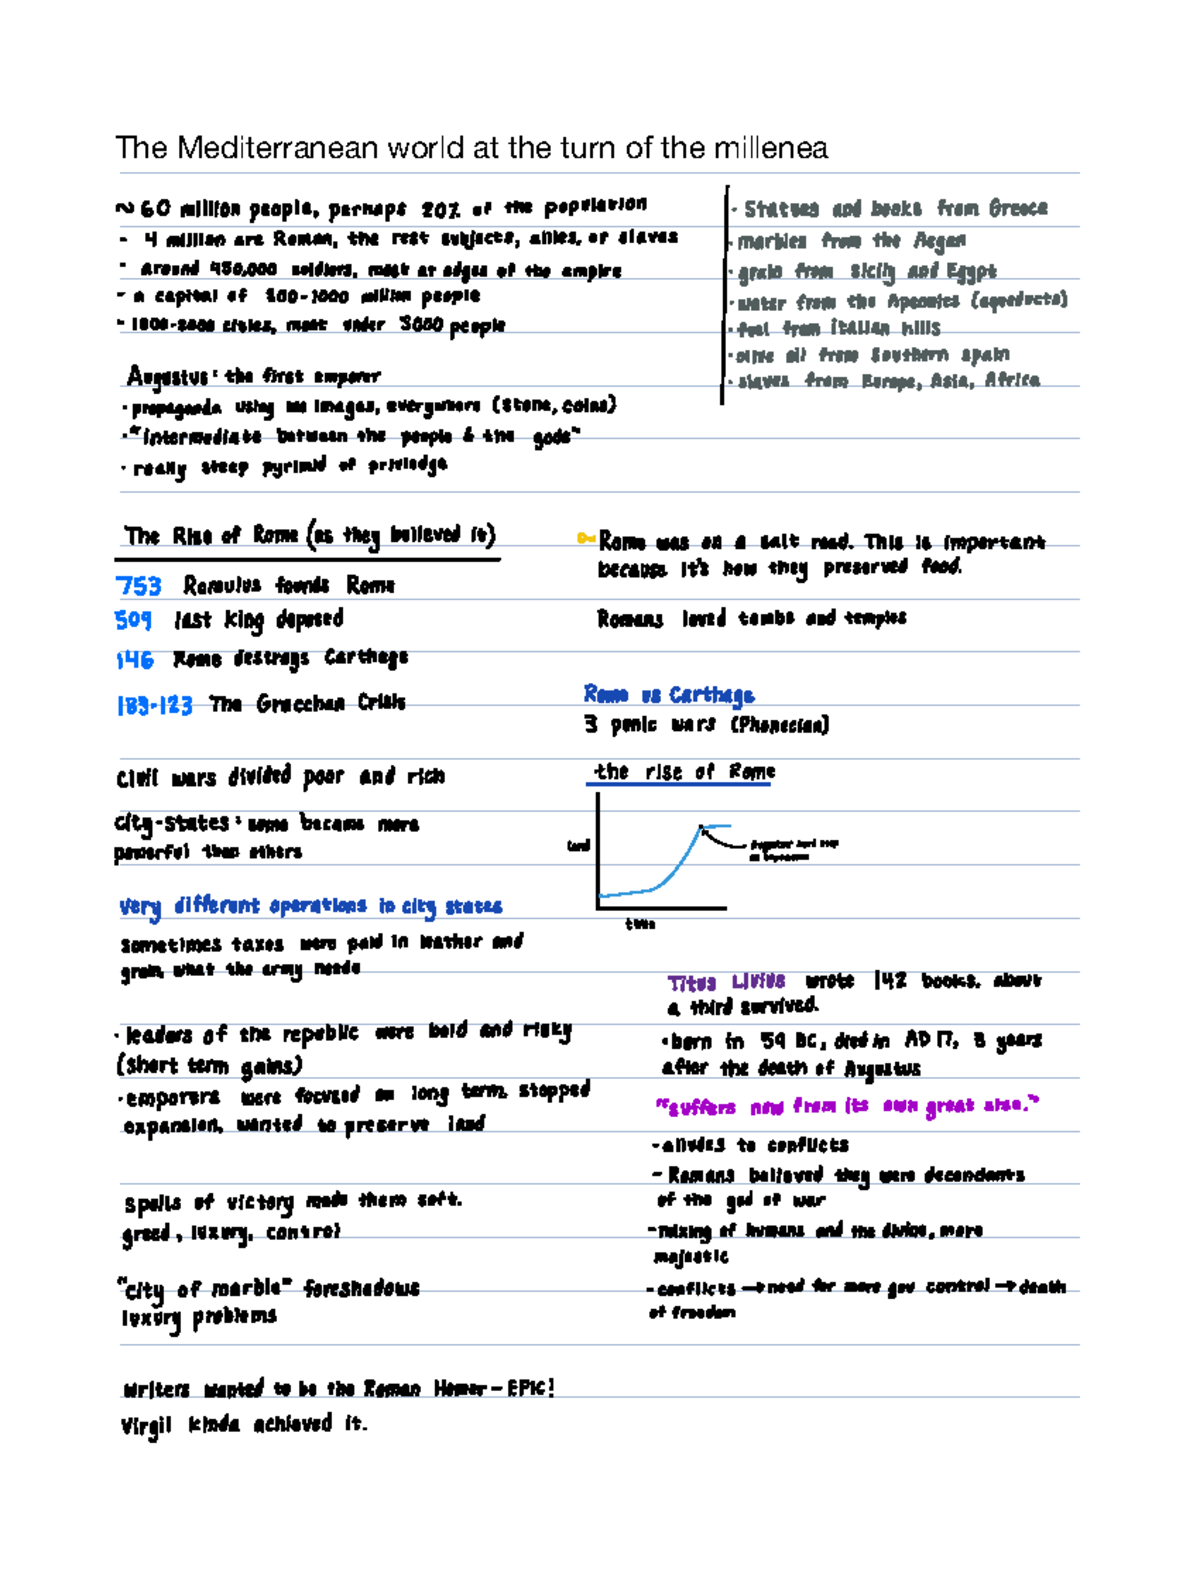 The Mediterranean world at the turn of the millenea
~ 60 million people, perhaps 20% of the population
- 4 million are Roman, the rest subjects, allies, or slaves
- around 450,000 soldiers, most at edges of the empire
- a capital of 800-1000 million people
- 1800-2000 cities, most under 3000 people
· Statues and books from Greece
· marbles from the Aegan
· grain from Sicily and Egypt
· water from the (aqueducts)
· fuel from italian hills
· olive oil from Southern spain
· slaves from Europe, Asia, Africa
Augustus: the first emperor
· propaganda using his images, everywhere (stone, coins)
· "intermediate between the people & the gods"
· really steep pyrimid of privledge
The Rise of Rome (as they believed it)
753 Romulus founds Rome
509 last king deposed
146 Rome destroys Carthage
183-123 The Gracchan Crisis
Rome was on a salt road. This is important
because it's how they preserved food.
Romans loved tombs and temples
Rome vs Carthage
3 punic wars (Phonecian)
Civil wars divided poor and rich
city-states: some became more
powerful than others
the rise of Rome
land
time
Very different operations in city states
Sometimes taxes were paid in leather and
grain, what the army needs
· leaders of the republic were bold and risky
(short term gains)
· emporers were focused on long term, stopped
expansion, wanted to preserve land
Titus Livius wrote 142 books, about
a third survived.
· born in 59 BC, died in AD 17, 3 years
after the death of Augustus
"suffers now from its own great size."
- alludes to conflicts
- Romans believed they were decendants
of the god of war
- mixing of humans and the divine, more
majestic
- conflicts → need for more gov control → death
of freedom
Spells of victory made them soft.
greed, luxury, control
"city of marble" foreshadows
luxury problems
Writers wanted to be the Roman Homer - EPIC!
Virgil kinda achieved it.